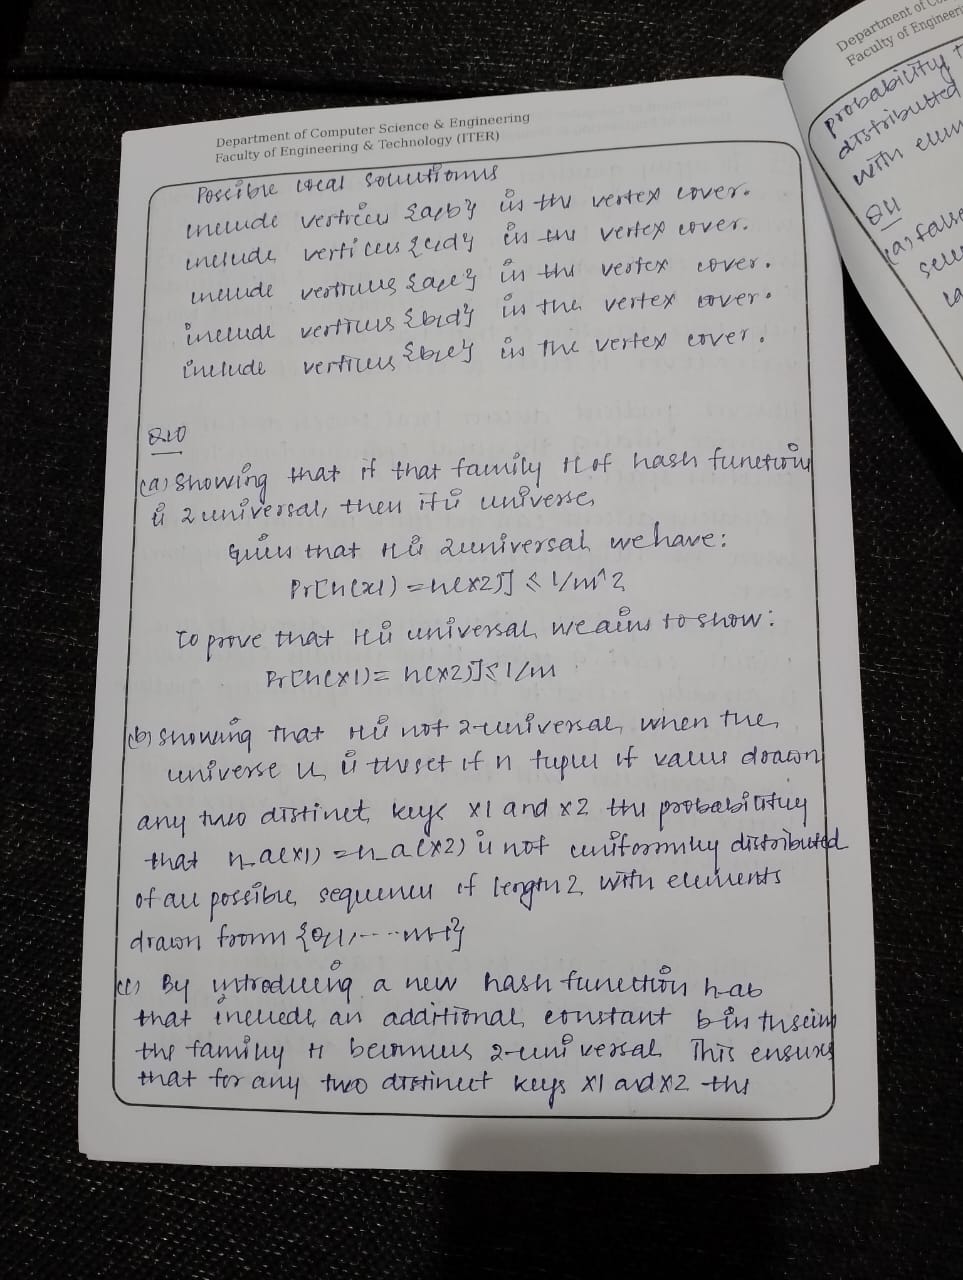 Department of Computer Science & Engineering
Faculty of Engineering & Technology (ITER)
Possible local solutions
include vertices {a,b} in the vertex cover.
include vertices {c,d} in the vertex cover.
include vertices {a,c} in the vertex cover.
include vertices {b,d} in the vertex cover.
include vertices {b,c} in the vertex cover.
Q10
(a) Showing that if that family H of hash function
is 2 universal, then H is universe,
Given that H is 2universal, we have:
Pr[h(x1) = h(x2)] ≤ 1/m^2
to prove that H is universal, we aims to show:
Pr[h(x1) = h(x2)] ≤ 1/m
(b) Showing that H is not 2-universal, when the
universe U is the set of n tuples of values drawn
any two distinct, keys x1 and x2 the probability
that h_a(x1) = h_a(x2) is not uniformly distributed
of all possible, sequences of length 2, with elements
drawn from {0,1,----m-1}
(c) By introducing a new hash function h-ab
that includes, an additional, constant b in
the family H becomes 2-universal. This ensures
that for any two distinct keys x1 and x2 the
Department of
Faculty of Engineering
probability
distributed
with
Q11
(a) false